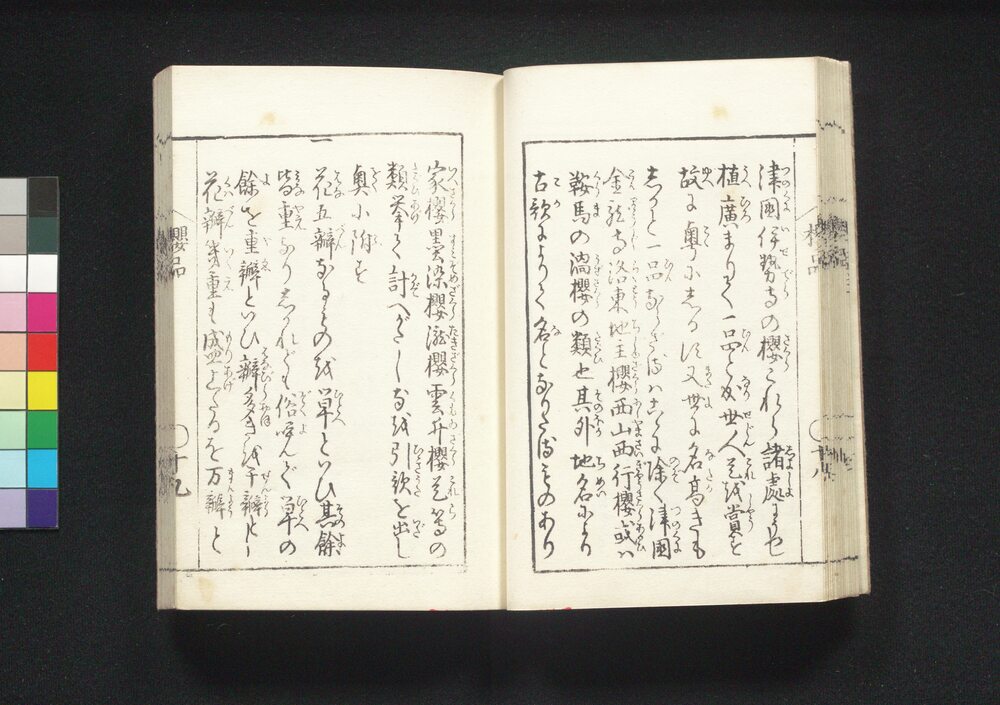 津國伊勢寺の櫻これら諸處にうつし
植廣まりて一品と成世人是を賞す
故に奥に志るす又世に名高きも
志かも一品ならざるはこゝに除く津國
金龍寺洛東地主櫻西山西行櫻或ハ
鞍馬の渦櫻の類也其外地名により
古歌によりて名となりたるものあり
家櫻墨染櫻瀧櫻雲井櫻是等の
類挙て計へがたし故に引歌を出し
奥に附す
一
花五瓣なるものを単といひ其餘
皆重なり志かれども俗呼んで単の
餘を重瓣といひ瓣多きを千瓣とし
花瓣幾重も盛上たるを万瓣と
櫻品
十八
櫻品
十九